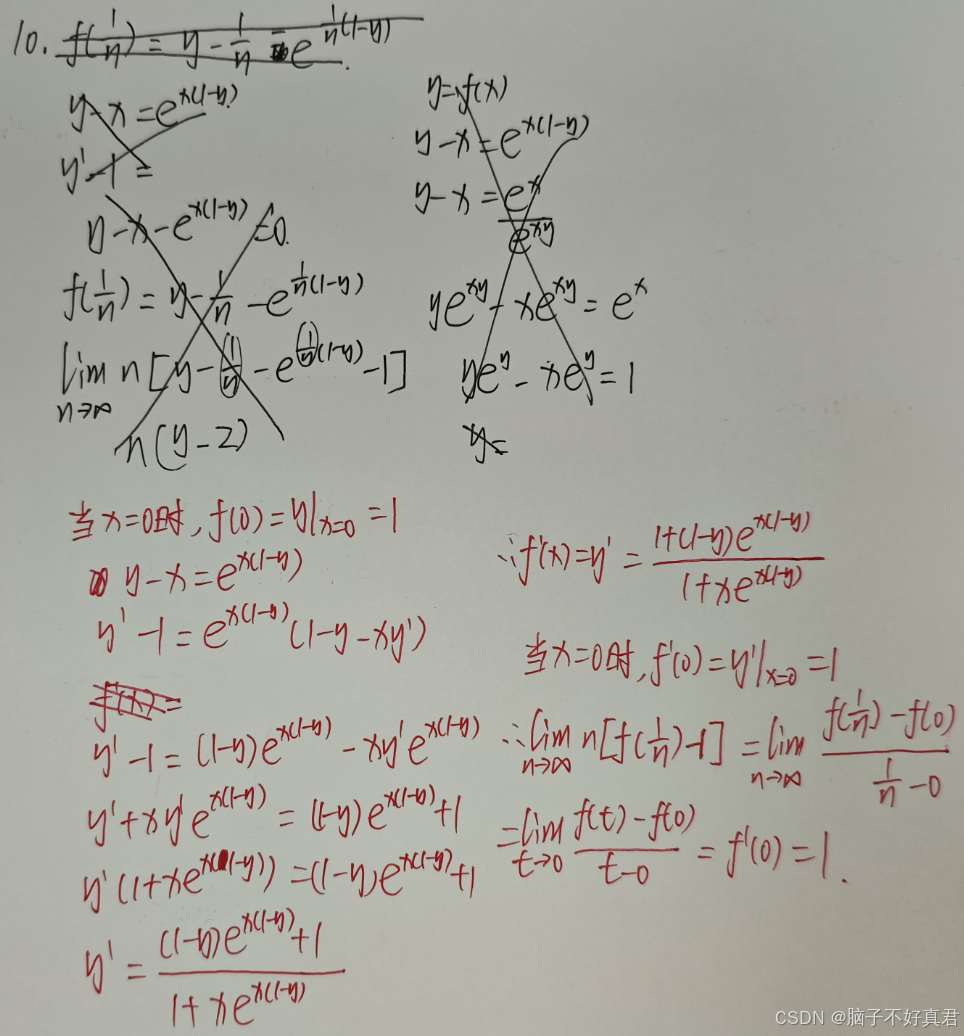 10. f(1/n) = y - 1/n = e^{1/n(1-y)}.
y - x = e^{x(1-y)}
y' - 1 =
y - x - e^{x(1-y)} = 0.
f(1/n) = y - 1/n - e^{1/n(1-y)}
lim_{n→∞} n[y - (1/n) - e^{(1/n)(1-y)} - 1]
n(y - 2)
y = f(x)
y - x = e^{x(1-y)}
y - x = e^x / e^{xy}
ye^{xy} - xe^{xy} = e^x
ye^y - xe^y = 1
y =
当x=0时, f(0) = y|_{x=0} = 1
y - x = e^{x(1-y)}
y' - 1 = e^{x(1-y)}(1-y-xy')
f'(x) =
y' - 1 = (1-y)e^{x(1-y)} - xy'e^{x(1-y)}
y' + xy'e^{x(1-y)} = (1-y)e^{x(1-y)} + 1
y'(1+xe^{x(1-y)}) = (1-y)e^{x(1-y)} + 1
y' = ((1-y)e^{x(1-y)} + 1) / (1 + xe^{x(1-y)})
∴f'(x) = y' = (1+(1-y)e^{x(1-y)}) / (1+xe^{x(1-y)})
当x=0时, f'(0) = y'|_{x=0} = 1
∴lim_{n→∞} n[f(1/n) - 1] = lim_{n→∞} (f(1/n) - f(0)) / (1/n - 0)
= lim_{t→0} (f(t) - f(0)) / (t - 0) = f'(0) = 1.
CSDN @脑子不好真君